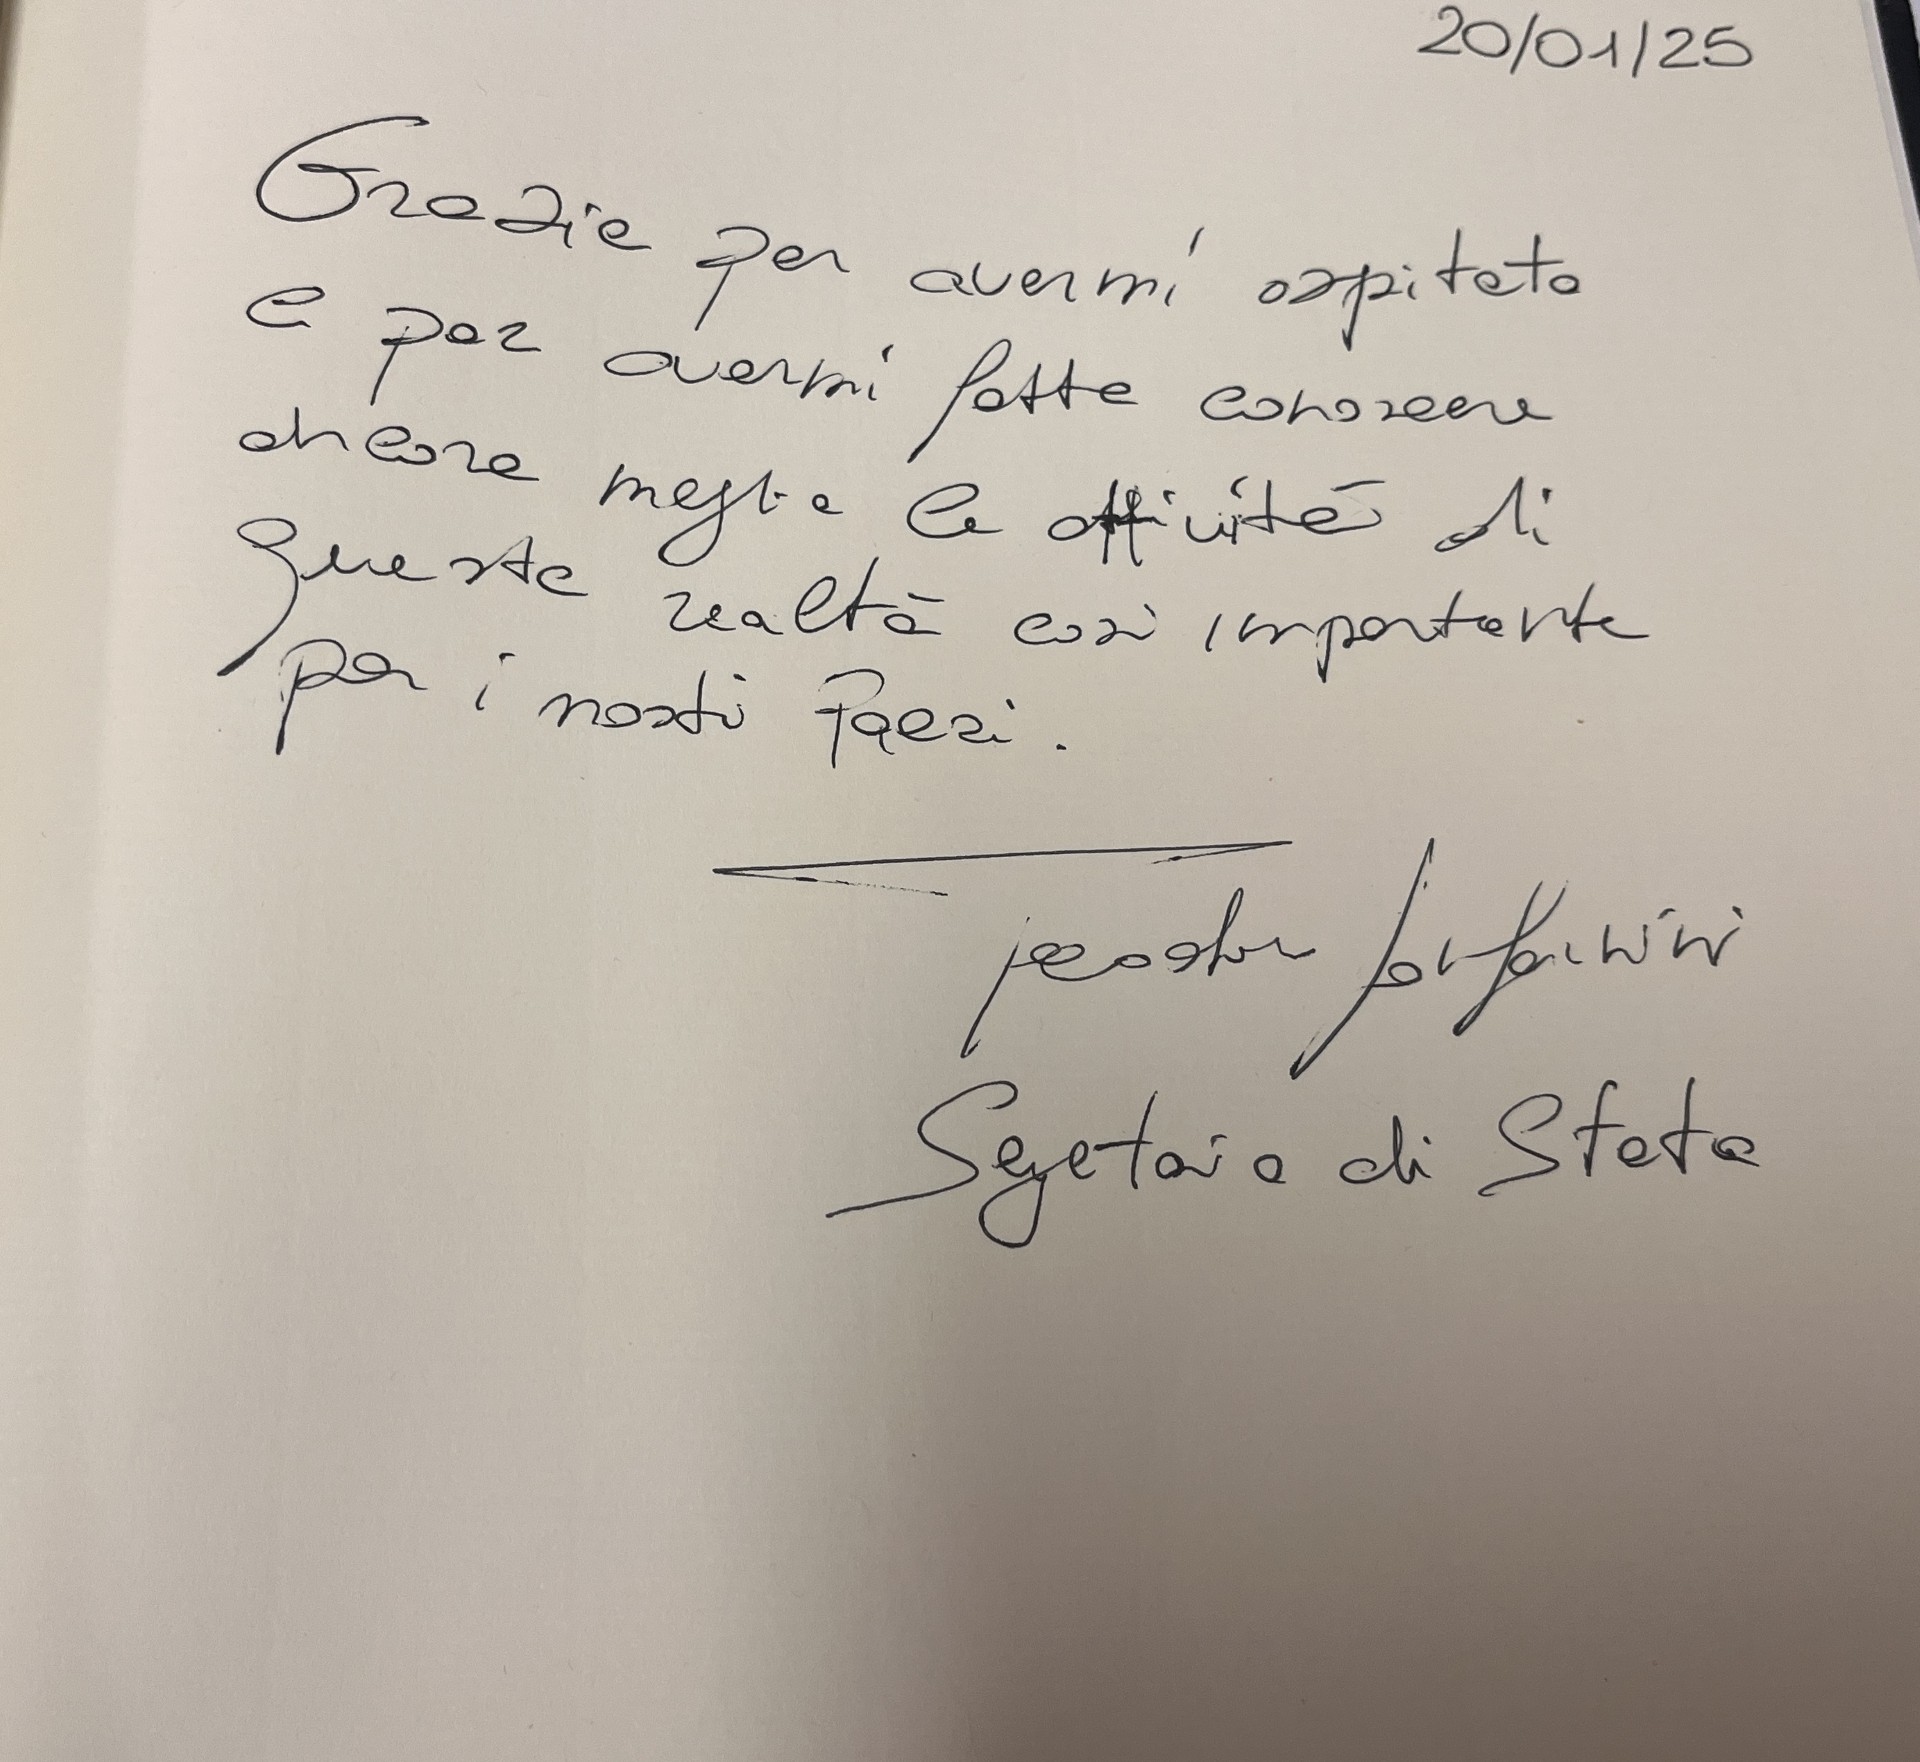 20/01/25
Grazie per avermi ospitato
e per avermi fatto conoscere
ancora meglio le attività di
questa realtà così importante
per i nostri Paesi.
Segretario di Stato